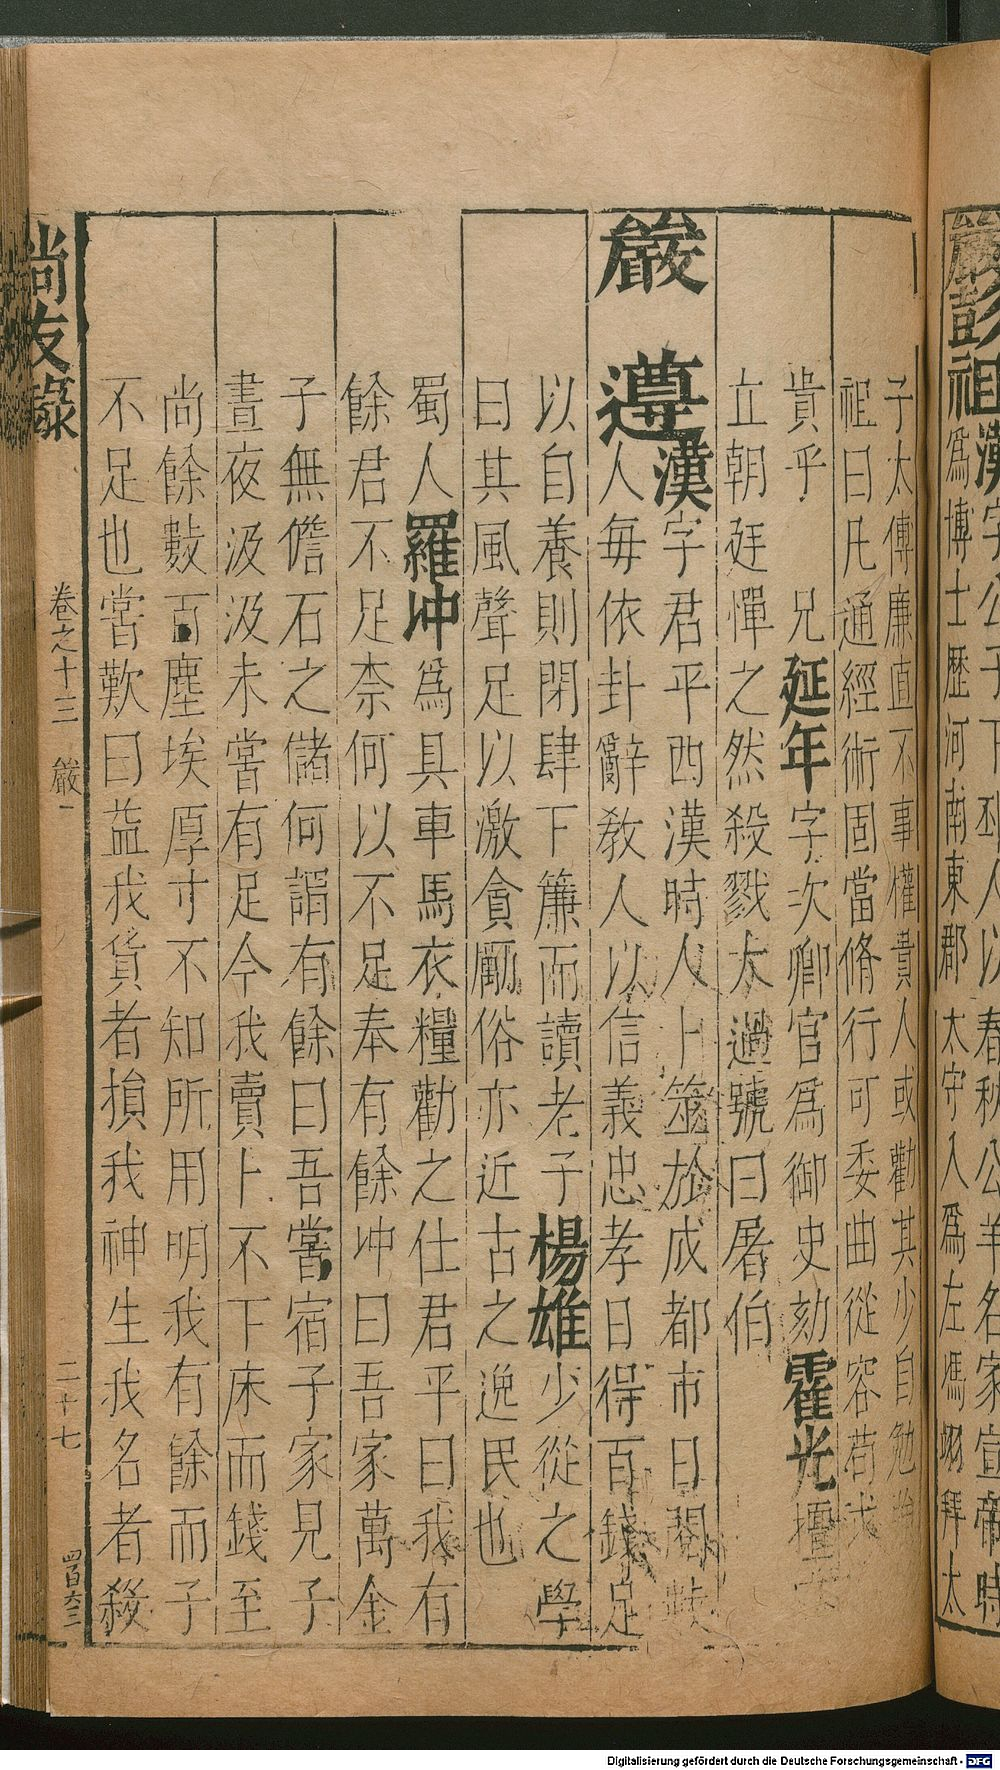 嚴彭祖漢字公子下邳人以春秋公羊名家宣帝時
爲博士歷河南東郡太守入爲左馮翊拜太
子太傅廉直不事權貴人或勸其少自勉
祖曰凡通經術固當脩行可委曲從容苟求
貴乎　兄延年字次卿官爲御史劾霍光擅
立朝廷憚之然殺戮太過號曰屠伯
嚴遵漢字君平西漢時人卜筮於成都市日閱數
人毎依卦辭教人以信義忠孝日得百錢足
以自養則閉肆下簾而讀老子楊雄少從之學
曰其風聲足以激貪勵俗亦近古之逸民也
蜀人羅冲爲具車馬衣糧勸之仕君平曰我有
餘君不足柰何以不足奉有餘冲曰吾家萬金
子無儋石之儲何謂有餘曰吾嘗宿子家見子
晝夜汲汲未嘗有足今我賣卜不下床而錢至
尚餘數百塵埃厚寸不知所用明我有餘而子
不足也嘗歎曰益我貨者損我神生我名者殺
尚友錄　卷之十三　嚴　二十七　四百六三
Digitalisierung gefördert durch die Deutsche Forschungsgemeinschaft - DFG